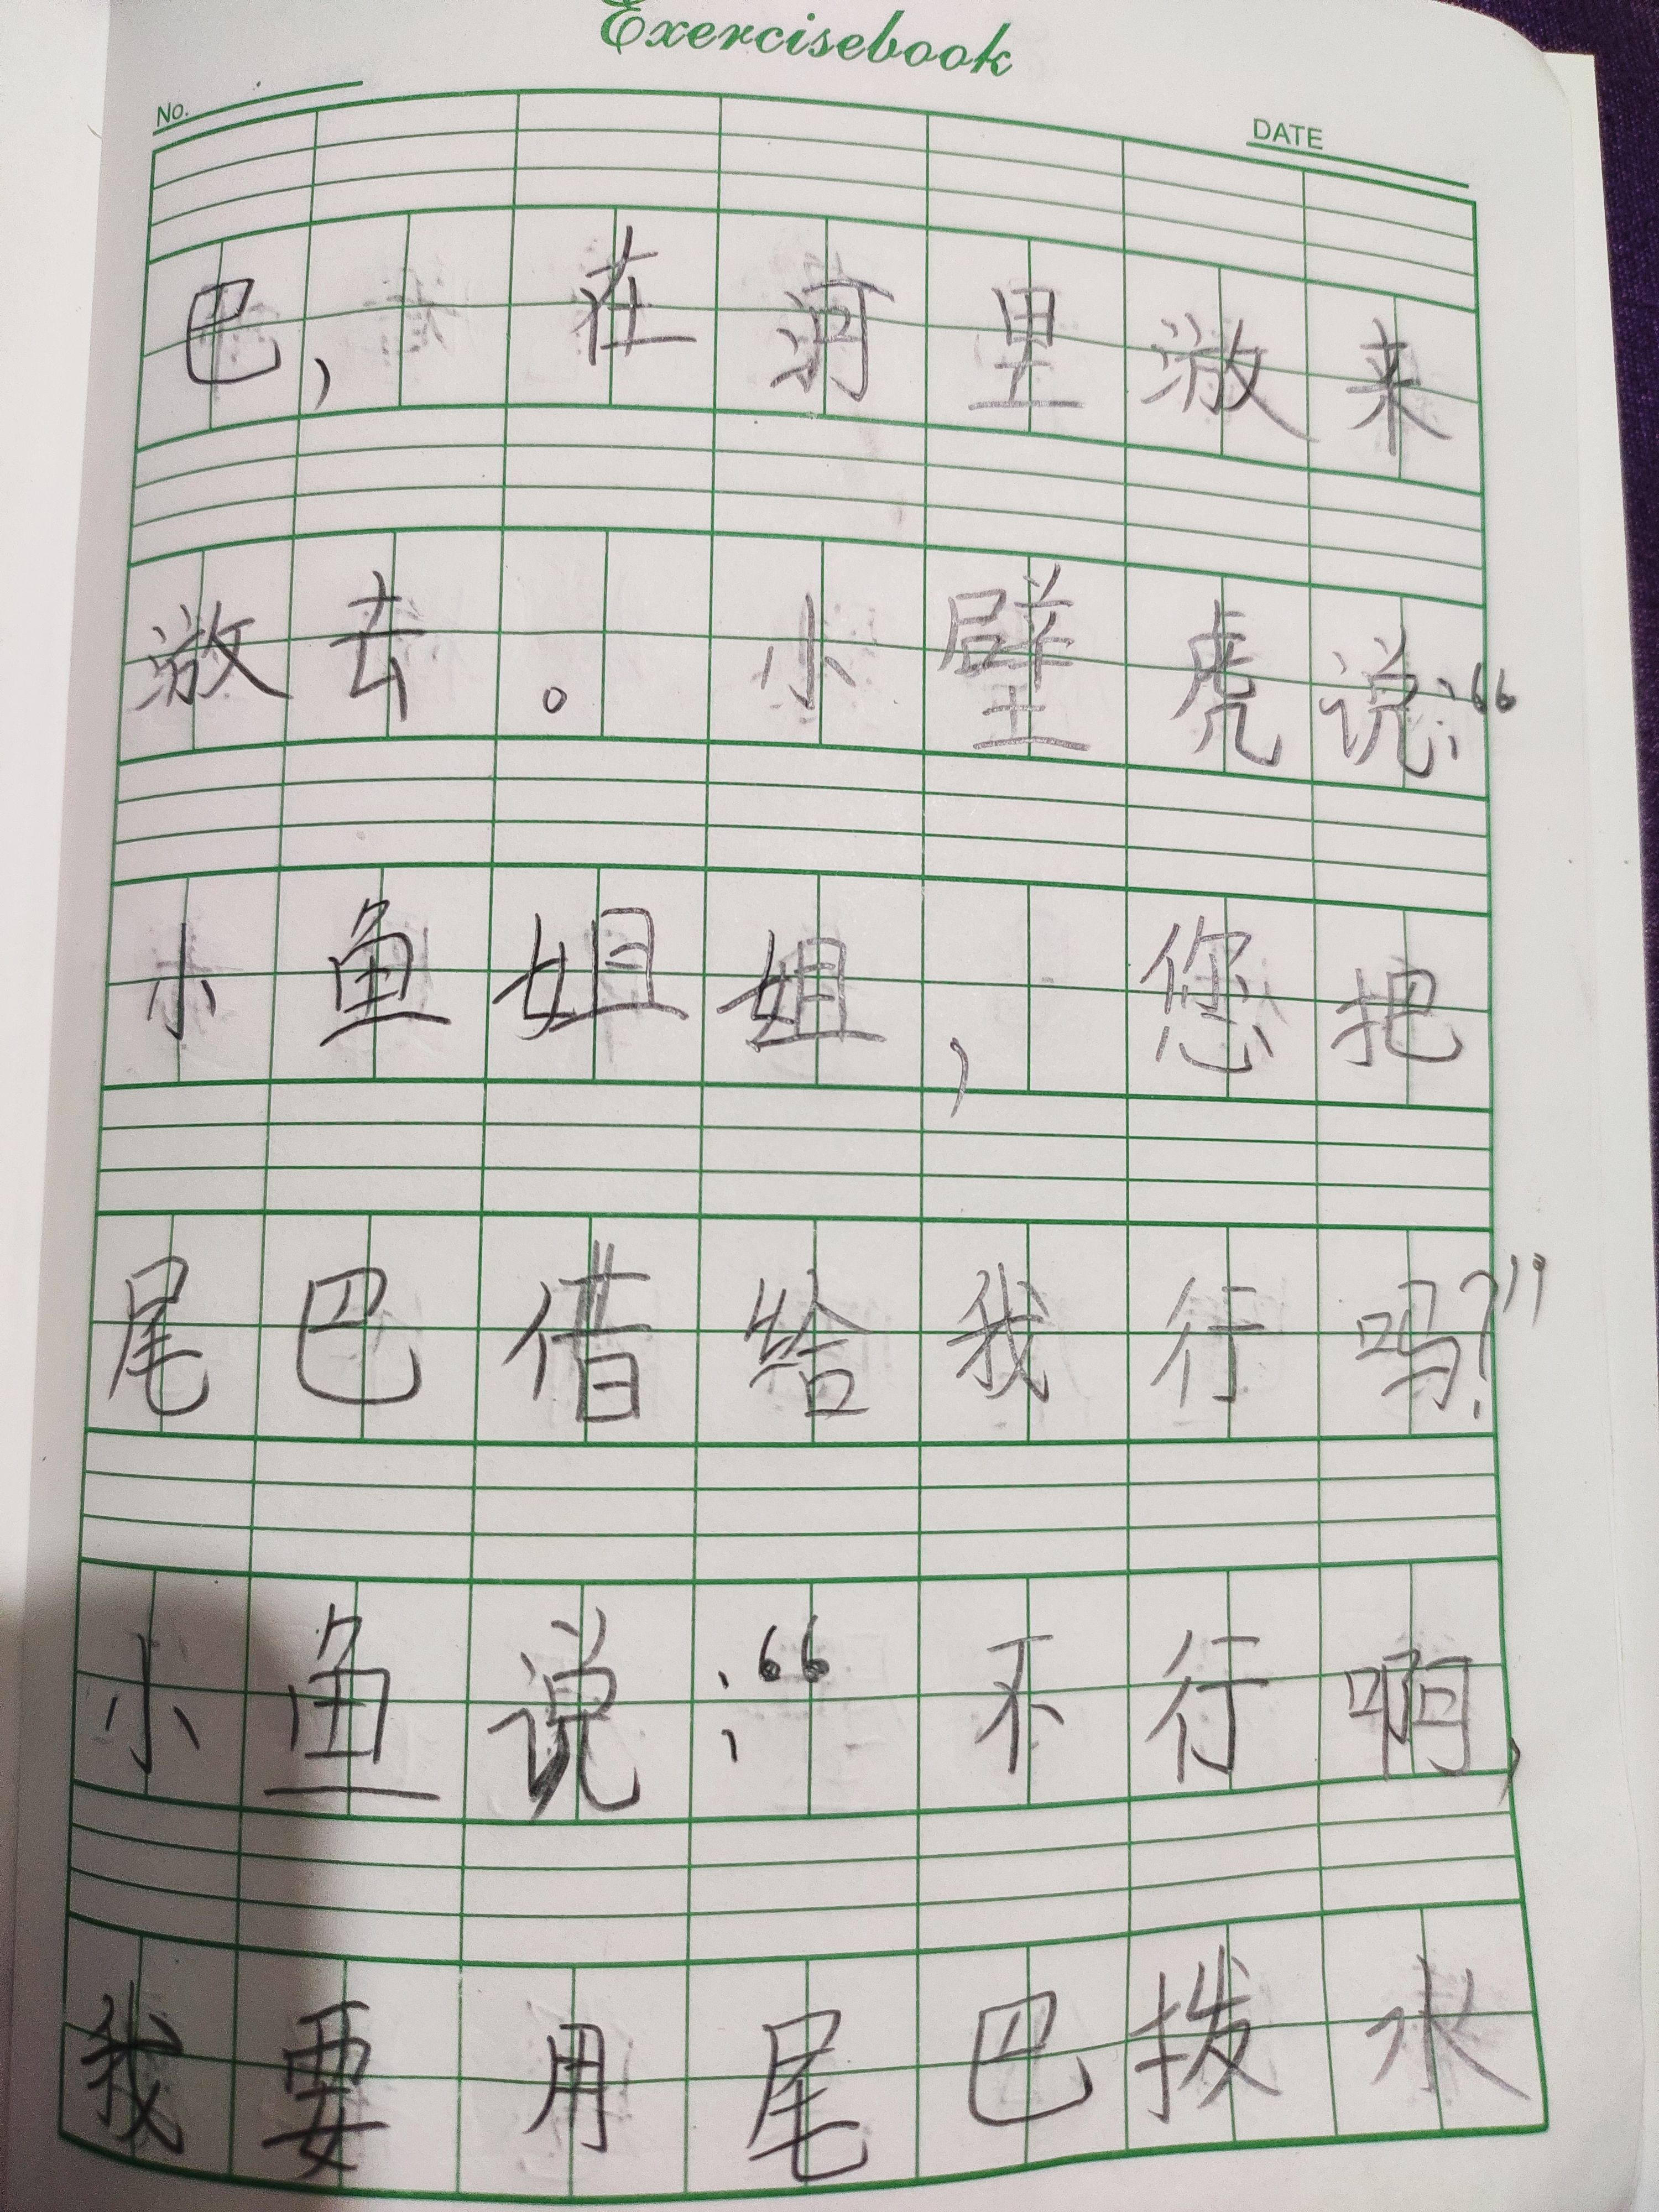 Exercisebook
No.
DATE
巴，在河里游来
游去。小壁虎说：“
小鱼姐姐，您把
尾巴借给我行吗？”
小鱼说：“不行啊，
我要用尾巴拨水